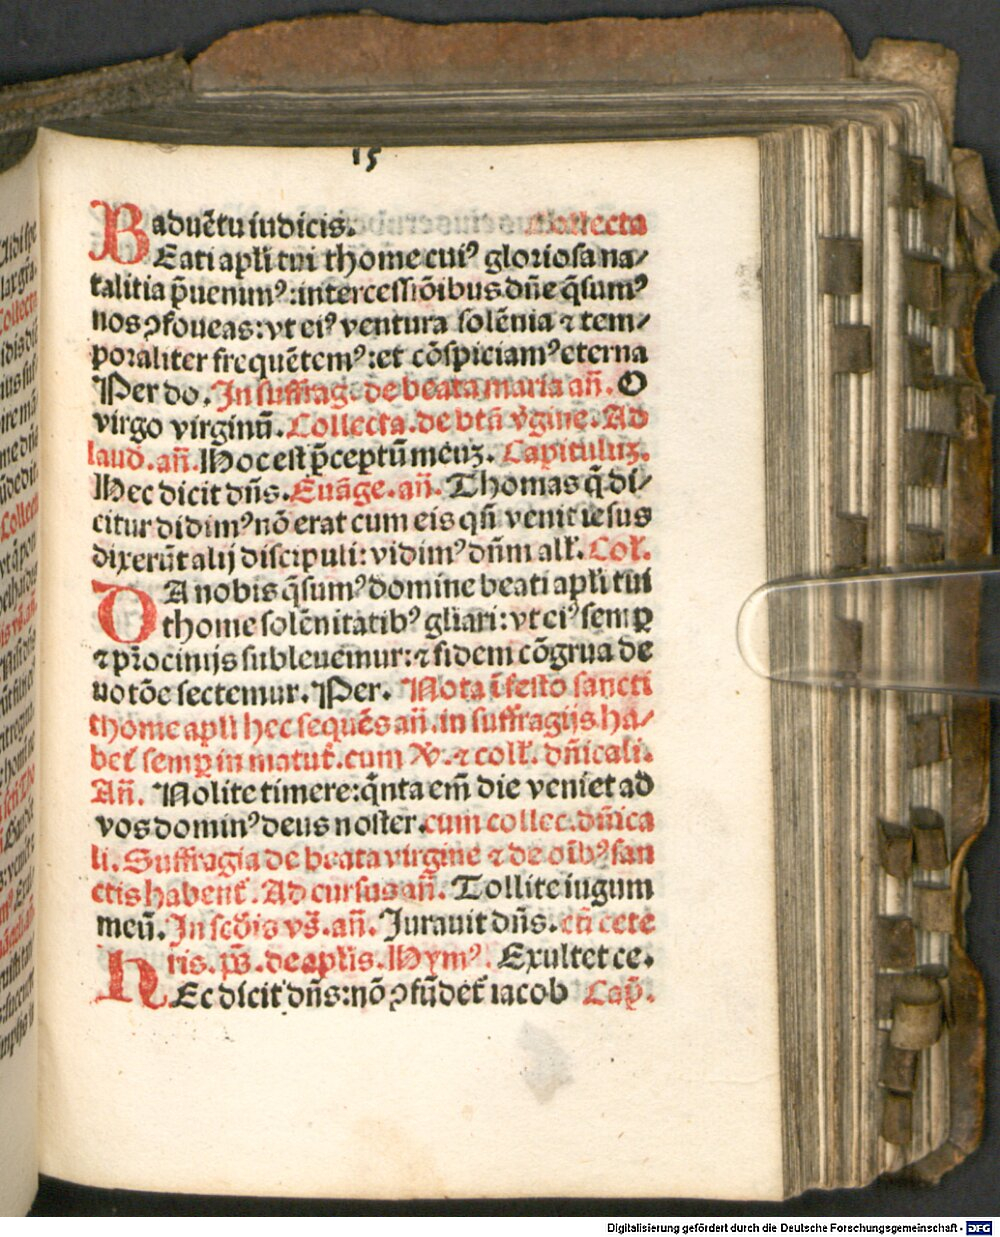 15
aduētu iudicis. Collecta
BEati apl̄i tui thome cuiꝰ gloriosa na/
talitia p̄uenimꝰ: intercessiōibus dn̄e q̄sumꝰ
nos ꝯfoueas: vt eiꝰ ventura solēnia ⁊ tem/
poraliter frequētemꝰ: et cōspiciamꝰ eterna
Per do. In suffrag. de beata maria an̄. O
virgo virginū. Collecta. de btā v̄gine. Ad
laud. an̄. Hoc est p̄ceptū meuꝫ. Capituluꝫ.
Hec dicit dn̄s. Euāge. an̄. Thomas q̄ di/
citur didimꝰ nō erat cum eis qn̄ venit iesus
dixerūt alij discipuli: vidimꝰ dn̄m all̄. Col̄.
DA nobis q̄sumꝰ domine beati apl̄i tui
thome solēnitatibꝰ gl̄iari: vt eiꝰ semꝑ
⁊ pr̄ocinijs subleuemur: ⁊ fidem cōgrua de
uotōe sectemur. Per. Nota ī festo sancti
thome apl̄i hec sequēs an̄. in suffragijs ha/
bet̄ semꝑ in matut̄. cum ℣. ⁊ coll̄. dn̄icali.
An̄. Nolite timere: q̄nta em̄ die veniet ad
vos dominꝰ deus noster. cum collec. dn̄ica
li. Suffragia de beata virgine ⁊ de oībꝰ san
ctis habent̄. Ad cursus an̄. Tollite iugum
meū. In scd̄is vs̄. an̄. Jurauit dn̄s. cū cete
ris. ps̄. de apl̄is. Hymꝰ. Exultet ce.
HEc dicit dn̄s: nō ꝯfūdet̄ iacob Cap̄.
Digitalisierung gefördert durch die Deutsche Forschungsgemeinschaft - DFG